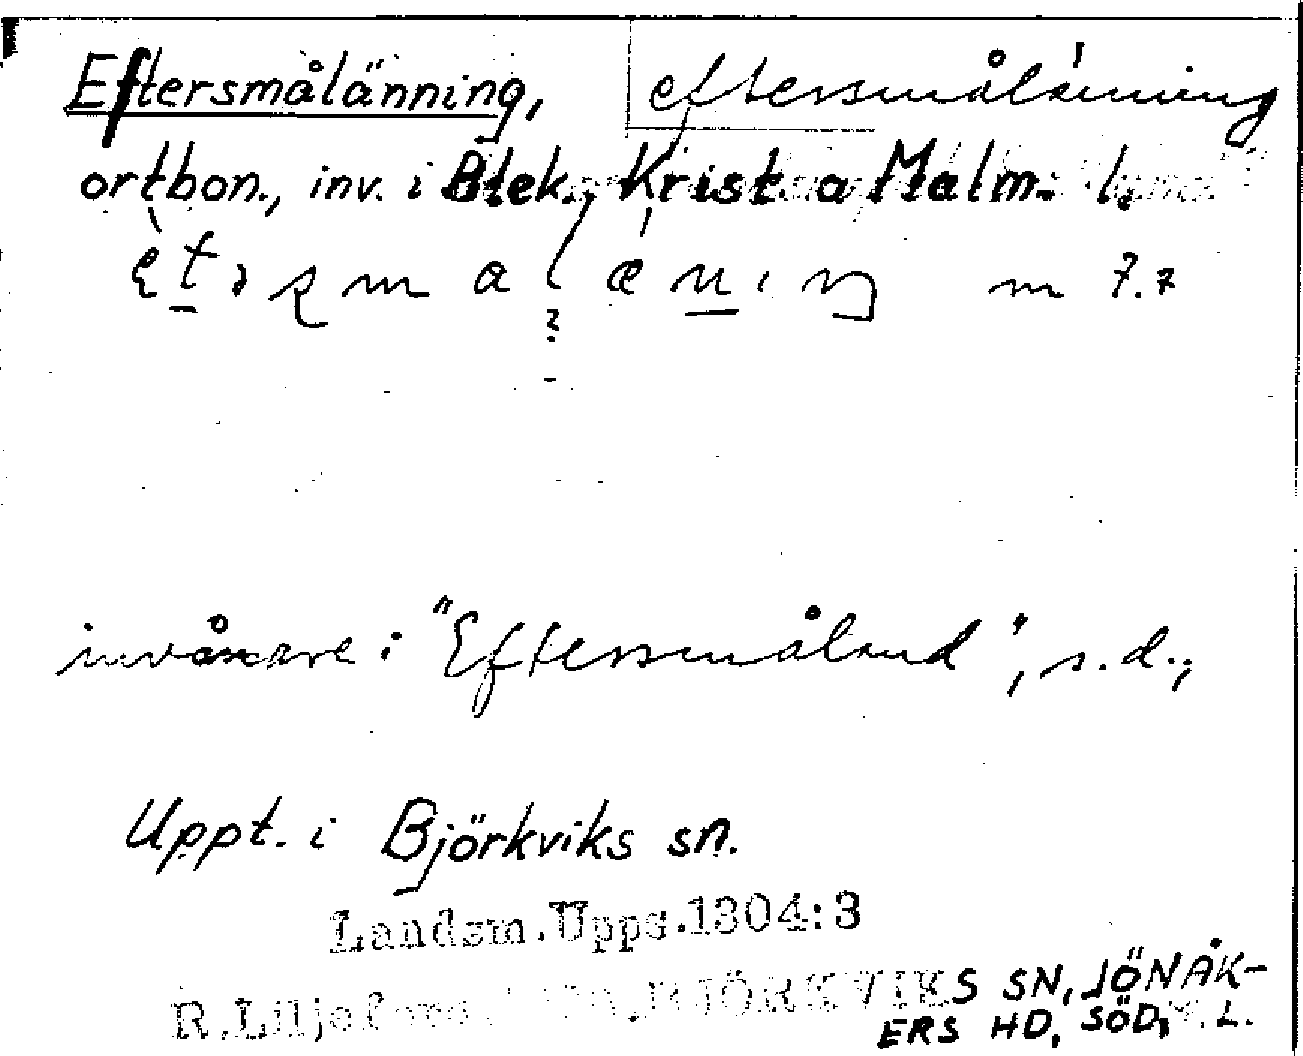 Eftersmålänning, eftersmålänning
ortbon., inv. i Blek., Krist. o Malm. l.
m 7.7
invånare i "Eftersmåland", s.d.,
Uppt. i Björkviks sn.
Landsm. Upps. 1304:3
R. Liljefors BJÖRKVIKS SN, JÖNÅK-
ERS HD, SÖD. L.